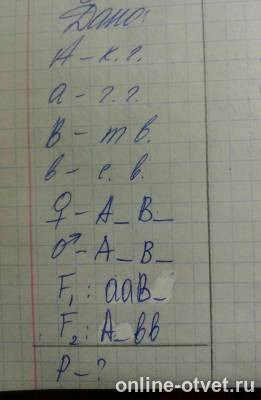 Дано:
А – к. г.
а – г. г.
В – т в.
в – с. в.
♀ – А_ В_
♂ – А_ В_
F₁ : ааВ_
F₂ : А_ вв
Р – ?
online-otvet.ru